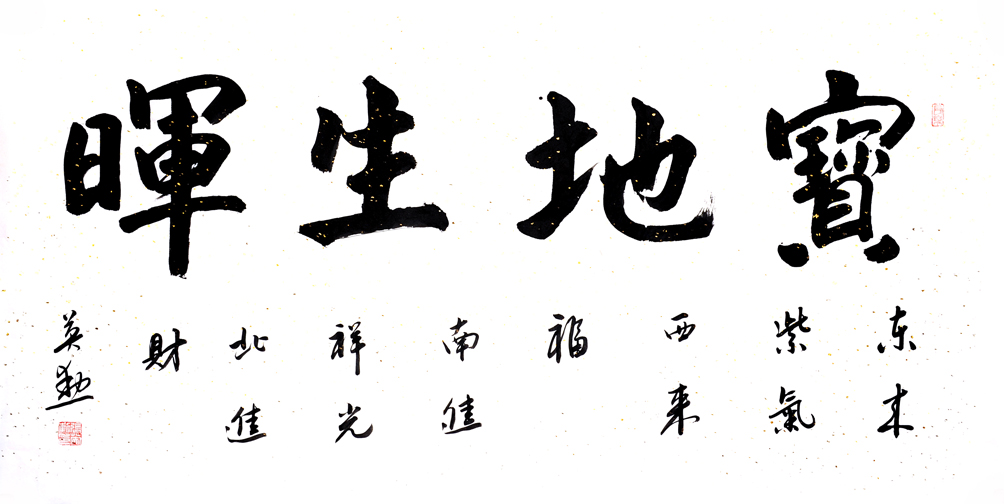 寶地生暉
东来
紫氣
西来
福
南進
祥光
北進
財
英